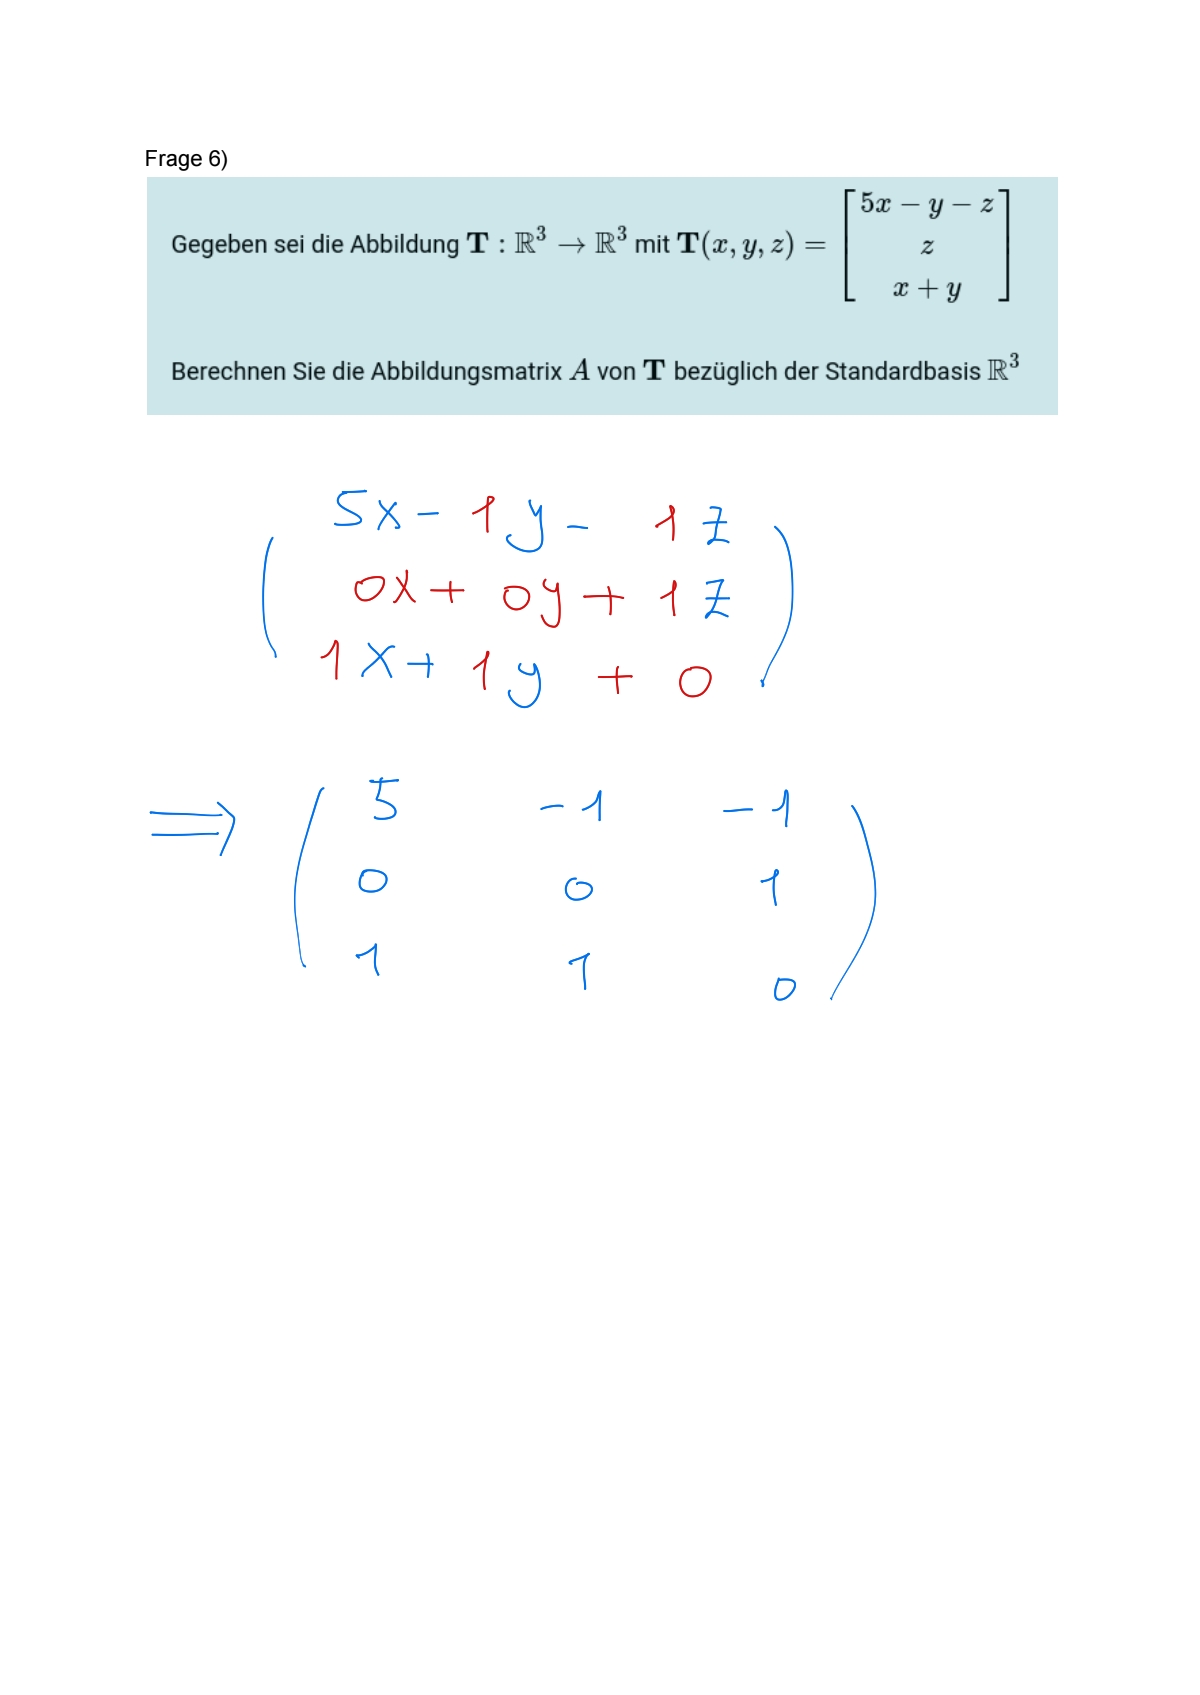 Frage 6)
Gegeben sei die Abbildung T : ℝ³ → ℝ³ mit T(x, y, z) = [5x − y − z
z
x + y]
Berechnen Sie die Abbildungsmatrix A von T bezüglich der Standardbasis ℝ³
( 5x - 1y - 1z
0x + 0y + 1z
1x + 1y + 0 )
⇒ ( 5 -1 -1
0 0 1
1 1 0 )